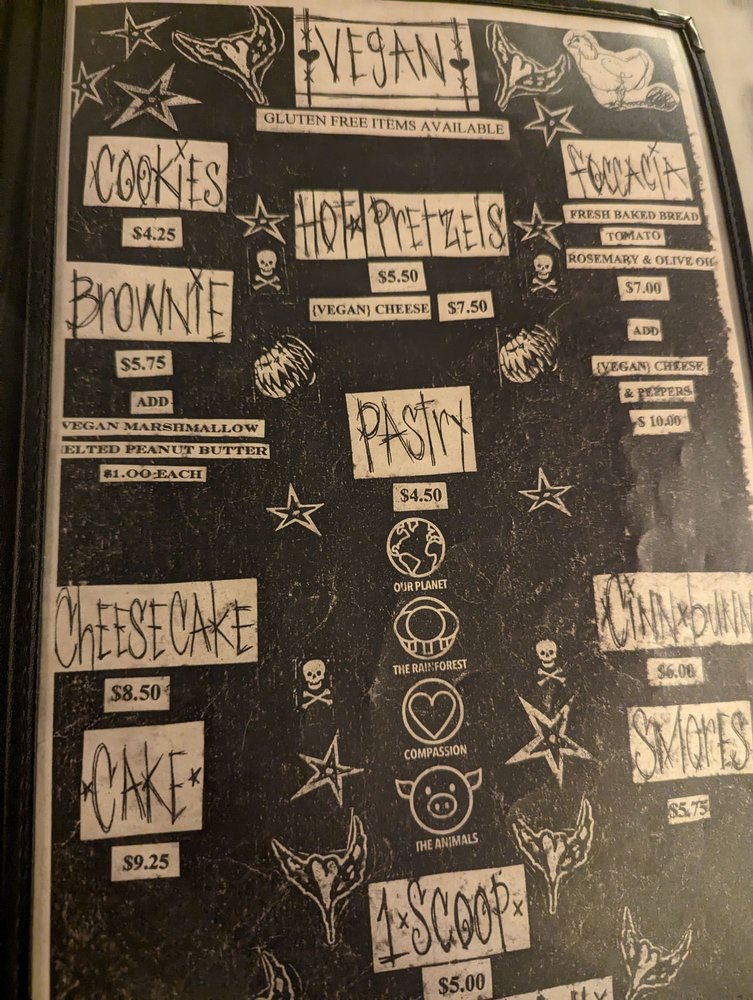 VEGAN
GLUTEN FREE ITEMS AVAILABLE
COOKIES
$4.25
BROWNIE
$5.75
ADD
VEGAN MARSHMALLOW
ELTED PEANUT BUTTER
$1.00 EACH
HOT PRETZELS
$5.50
{VEGAN} CHEESE $7.50
FOCCACIA
FRESH BAKED BREAD
TOMATO
ROSEMARY & OLIVE OIL
$7.00
ADD
{VEGAN} CHEESE
& PEPPERS
$ 10.00
PASTRY
$4.50
OUR PLANET
THE RAINFOREST
COMPASSION
THE ANIMALS
CHEESECAKE
$8.50
CAKE
$9.25
CINN BUNN
$6.00
SMORES
$5.75
1 SCOOP
$5.00